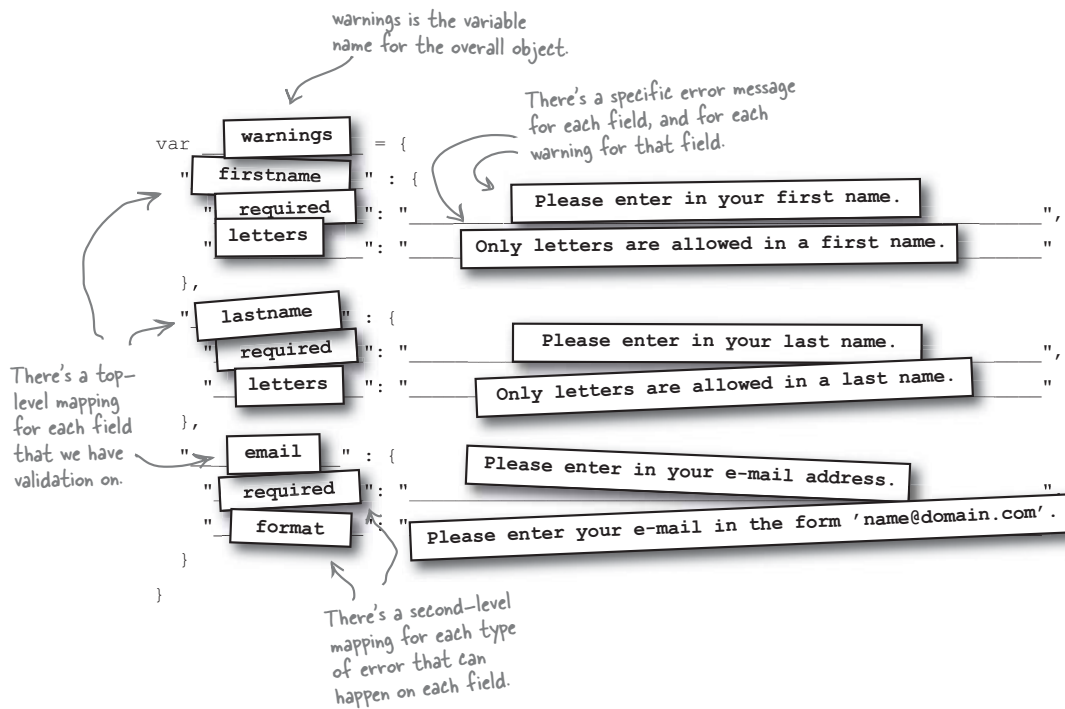 warnings is the variable
name for the overall object.
There's a specific error message
for each field, and for each
warning for that field.
var warnings = {
"firstname" : {
"required": "Please enter in your first name.",
"letters": "Only letters are allowed in a first name."
},
"lastname" : {
"required": "Please enter in your last name.",
"letters": "Only letters are allowed in a last name."
},
"email" : {
"required": "Please enter in your e-mail address.",
"format": "Please enter your e-mail in the form 'name@domain.com'.
}
}
There's a top-
level mapping
for each field
that we have
validation on.
There's a second-level
mapping for each type
of error that can
happen on each field.